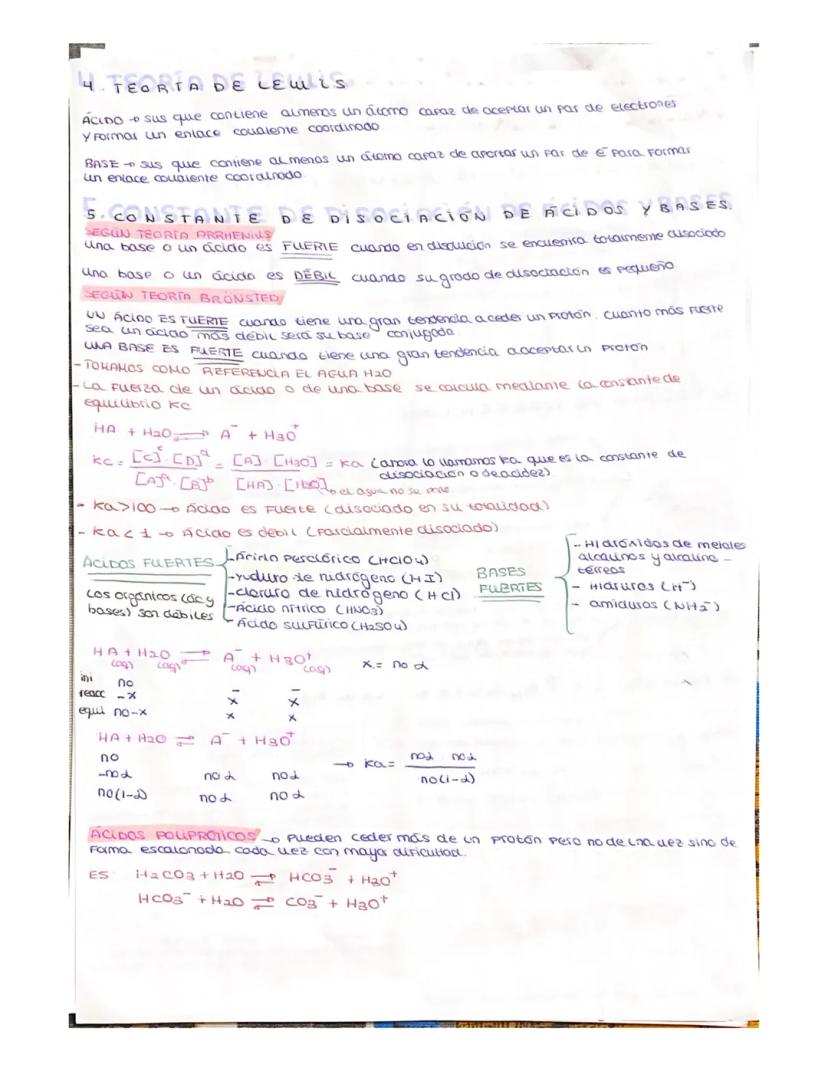 4. TEORÍA DE LEWIS
ÁCIDO → sus que contiene almenos un átomo capaz de aceptar un par de electrones
y formar un enlace covalente coordinado
BASE → sus que contiene almenos un átomo capaz de aportar un par de e⁻ para formar
un enlace covalente coordinado
5. CONSTANTE DE DISOCIACIÓN DE ÁCIDOS Y BASES.
SEGÚN TEORÍA ARRHENIUS
una base o un ácido es FUERTE cuando en disolución se encuentra totalmente disociado
una base o un ácido es DÉBIL cuando su grado de disociación es pequeño
SEGÚN TEORÍA BRÖNSTED
UN ÁCIDO ES FUERTE cuando tiene una gran tendencia a ceder un protón. cuanto más fuerte
sea un ácido más débil será su base conjugada.
UNA BASE ES FUERTE cuando tiene una gran tendencia a aceptar un protón
- TOMAMOS COMO REFERENCIA EL AGUA H2O
- La fuerza de un ácido o de una base se calcula mediante la constante de
equilibrio Kc
HA + H2O ⇌ A⁻ + H3O⁺
Kc = [C]ᶜ · [D]ᵈ = [A] · [H3O] = Ka (ahora lo llamamos Ka que es la constante de
disociación o de acidez)
[A]ᵃ · [B]ᵇ [HA] · [H2O] → el agua no se pone
- Ka>100 → ácido es fuerte (disociado en su totalidad)
- Ka < 1 → ácido es débil (parcialmente disociado)
ÁCIDOS FUERTES
Los orgánicos (ác y
bases) son débiles
- Ácido perclórico (HClO4)
- yoduro de hidrógeno (HI)
- cloruro de hidrógeno (HCl)
- Ácido nítrico (HNO3)
- Ácido sulfúrico (H2SO4)
BASES
FUERTES
- Hidróxidos de metales
alcalinos y alcalino-
térreos
- Hidruros (H⁻)
- amiduros (NH2⁻)
HA + H2O ⇌ A⁻ + H3O⁺ x = no α
(aq) (aq) (aq) (aq)
ini no - -
reacc -x x x
equil no-x x x
HA + H2O ⇌ A⁻ + H3O⁺
no
-noα noα noα
no(1-α) noα noα
→ Ka = noα noα
no(1-α)
ÁCIDOS POLIPRÓTICOS → pueden ceder más de un protón pero no de una vez sino de
forma escalonada cada vez con mayor dificultad.
ES: H2CO3 + H2O ⇌ HCO3⁻ + H3O⁺
HCO3⁻ + H2O ⇌ CO3⁻ + H3O⁺